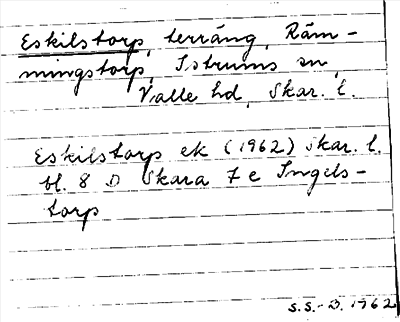 Eskilstorp, terräng, Räm-
mingstorp, Istrums sn,
Valle hd, Skar. l.
Eskilstorp ek (1962) Skar. l.
bl. 8 D Skara 7 e Ingels-
torp
S.S.-D. 1962